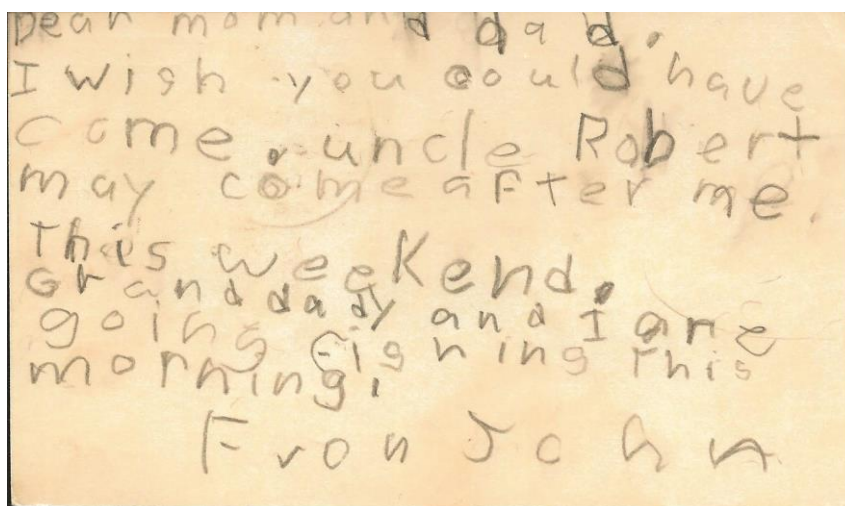 Dear mom and dad.
I wish you could have
come. uncle Robert
may come after me.
This weekend.
Grand dady and I are
going fishing this
morning.
Fron John